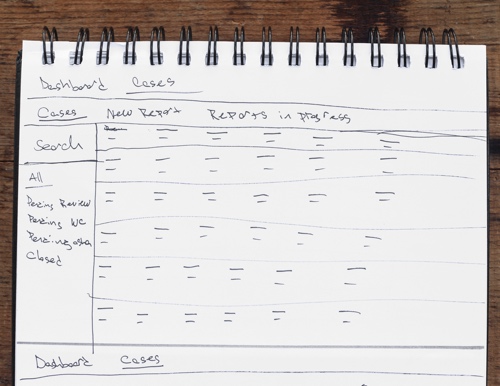 Dashboard Cases
Cases New Report Reports in progress
Search
All
Pending Review
Pending WC
Pending
Closed
Dashboard Cases